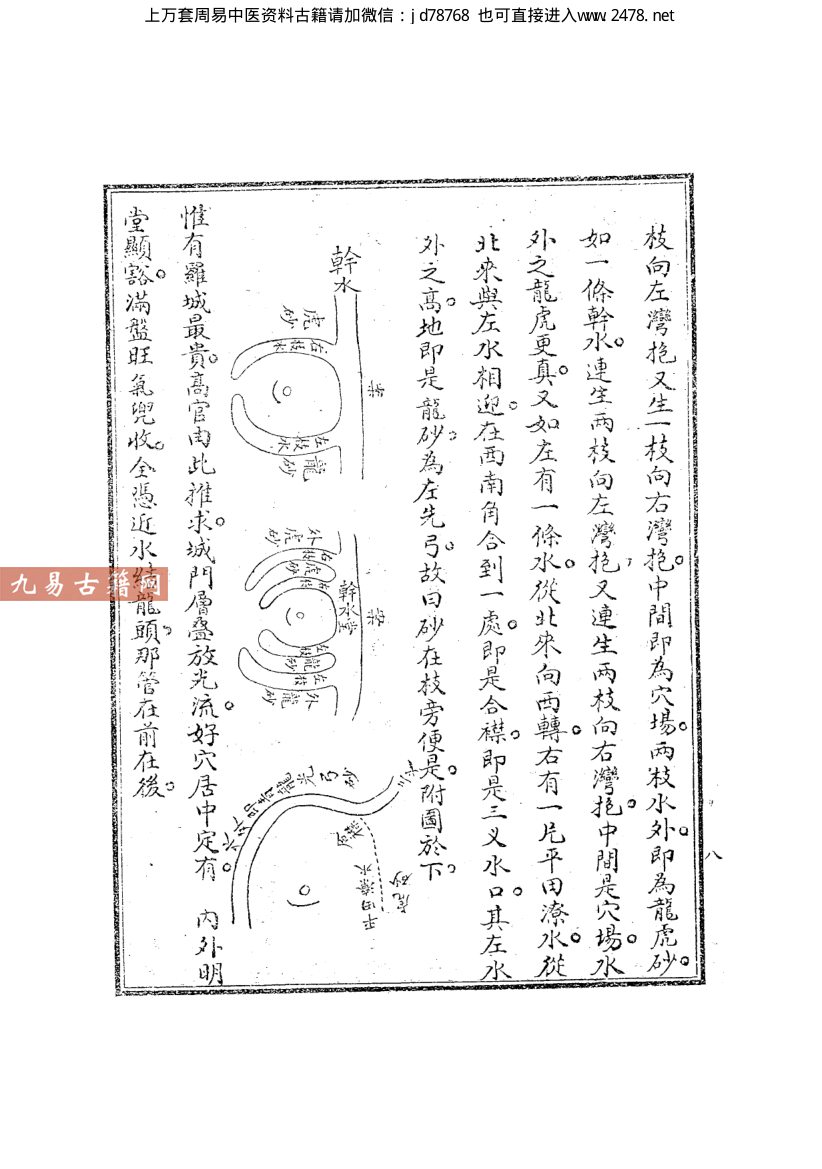 上万套周易中医资料古籍请加微信：jd78768 也可直接进入www.2478.net
枝向左灣抱又生一枝向右灣抱。中間即為穴場。兩枝水外。即為龍虎砂。
如一條幹水。連生兩枝向左灣抱，又連生兩枝向右灣抱。中間是穴場。水
外之龍虎更真。又如左有一條水。從北來向西轉。右有一片平田潦水。從
北來與左水相迎。在西南角合到一處。即是合襟。即是三义水口。其左水
外之高。地即是龍砂。為左先弓。故曰砂在枝旁便是。附圖於下。
幹水
虎砂
右枝水
左枝水
龍砂
幹水
外虎砂
右枝
虎砂
左枝
龍砂
左枝
外龍砂
龍砂
平田潦水
虎砂
惟有羅城最貴。高官由此推求。城門層疊放光流。好穴居中定有。 內外明
堂顯豁。滿盤旺氣兜收。全憑近水結龍頭。那管在前在後。
八
九易古籍网